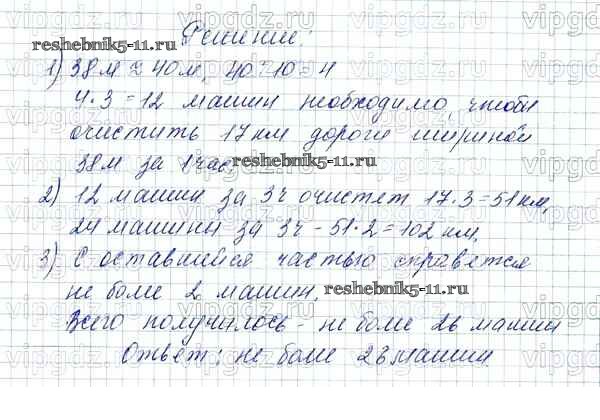 Решение:
1) 38 м ≈ 40 м, 40 : 10 = 4
4 · 3 = 12 машин необходимо, чтобы
очистить 17 км дороги шириной
38 м за 1 час
2) 12 машин за 3ч очистет 17 · 3 = 51 км,
24 машины за 3ч - 51 · 2 = 102 км,
3) С оставшийся частью справется
не боле 2 машин.
Всего получилось - не боле 26 машин
Ответ: не боле 26 машин.
reshebnik5-11.ru
reshebnik5-11.ru
reshebnik5-11.ru
vipgdz.ru